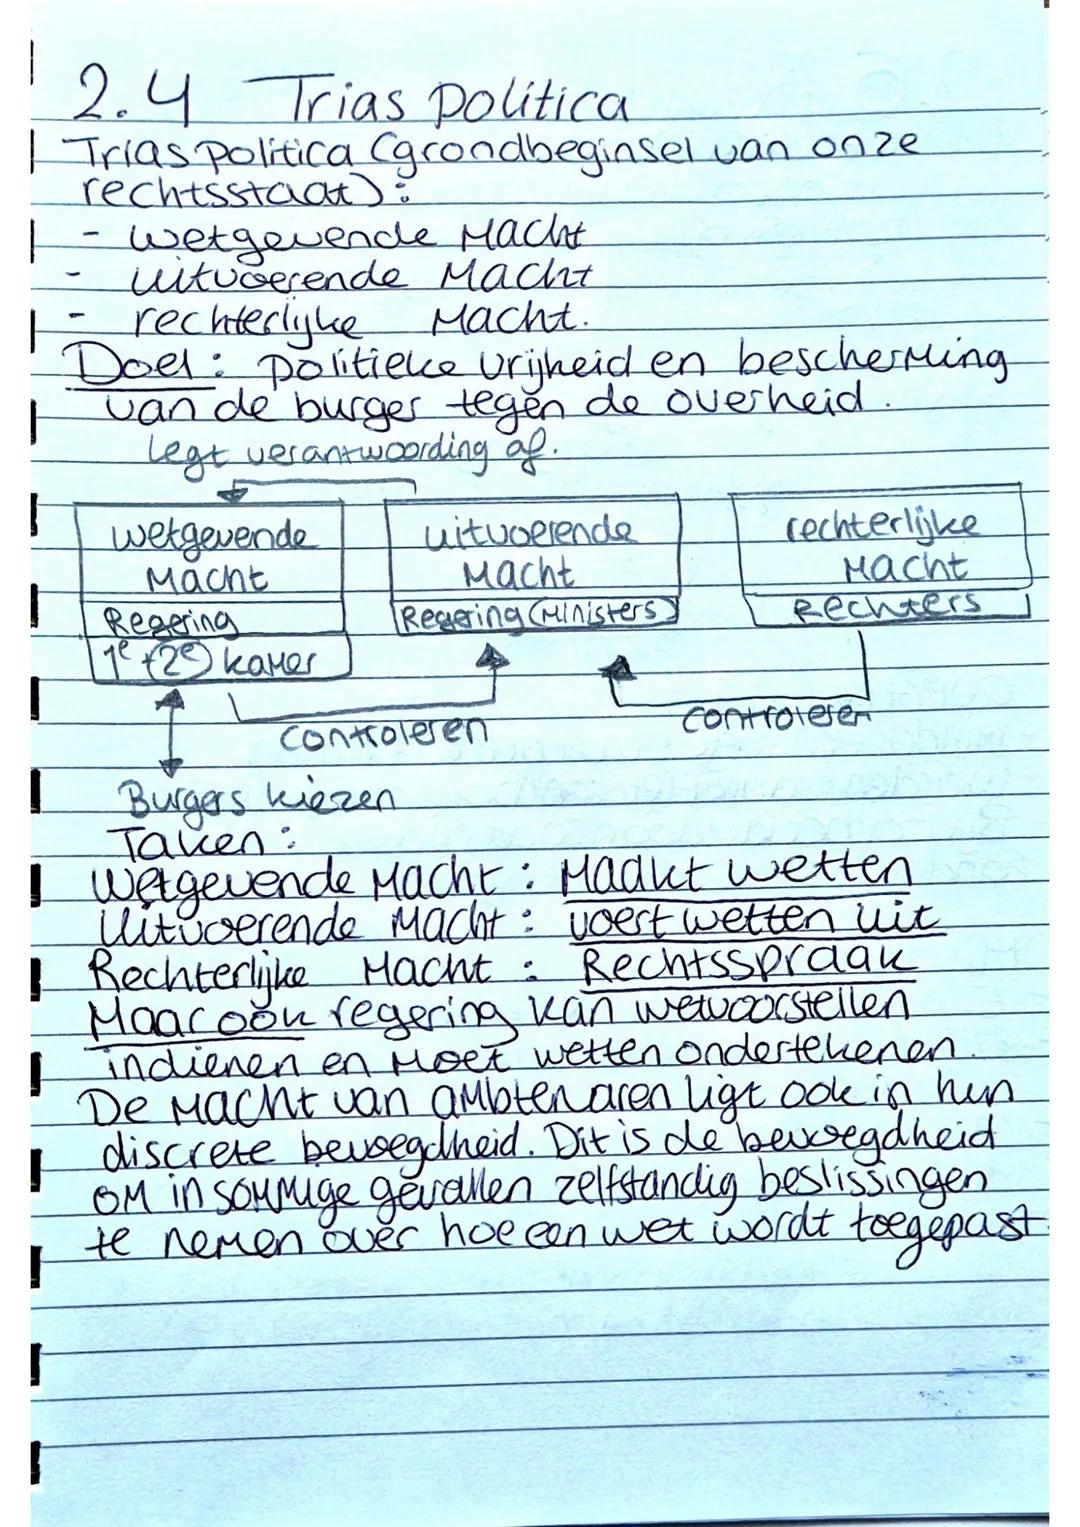 2.4 Trias politica
Trias politica (grondbeginsel van onze
rechtsstaat):
- wetgevende Macht
- uitvoerende Macht
- rechterlijke Macht.
Doel: politieke vrijheid en bescherming
van de burger tegen de overheid.
Legt verantwoording af.
wetgevende
Macht
Regering
1e + 2e kamer
uitvoerende
Macht
Regering (Ministers)
rechterlijke
Macht
Rechters
controleren
controleren
Burgers kiezen
Taken:
Wetgevende Macht: Maakt wetten
Uitvoerende Macht: voert wetten uit
Rechterlijke Macht: Rechtsspraak
Maar ook regering kan wetvoorstellen
indienen en moet wetten ondertekenen.
De macht van ambtenaren ligt ook in hun
discrete bevoegdheid. Dit is de bevoegdheid
om in sommige gevallen zelfstandig beslissingen
te nemen over hoe een wet wordt toegepast